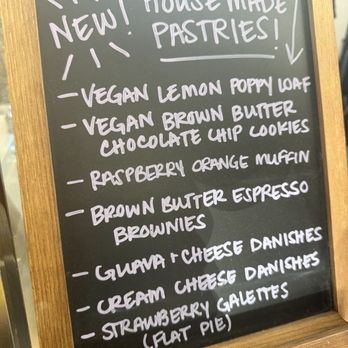 NEW! HOUSEMADE
PASTRIES!
- VEGAN LEMON POPPY LOAF
- VEGAN BROWN BUTTER
CHOCOLATE CHIP COOKIES
- RASPBERRY ORANGE MUFFIN
- BROWN BUTTER ESPRESSO
BROWNIES
- GUAVA + CHEESE DANISHES
- CREAM CHEESE DANICHES
- STRAWBERRY GALETTES
(FLAT PIE)